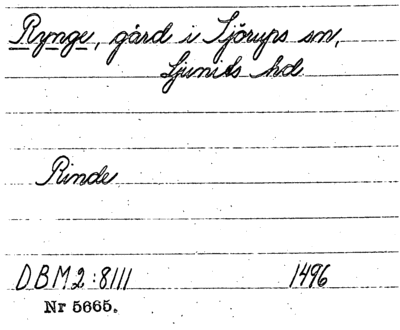 Rynge, gård i Sjörups sn,
Ljunits hd
Rinde
DBM2:8111 1496
Nr 5665.